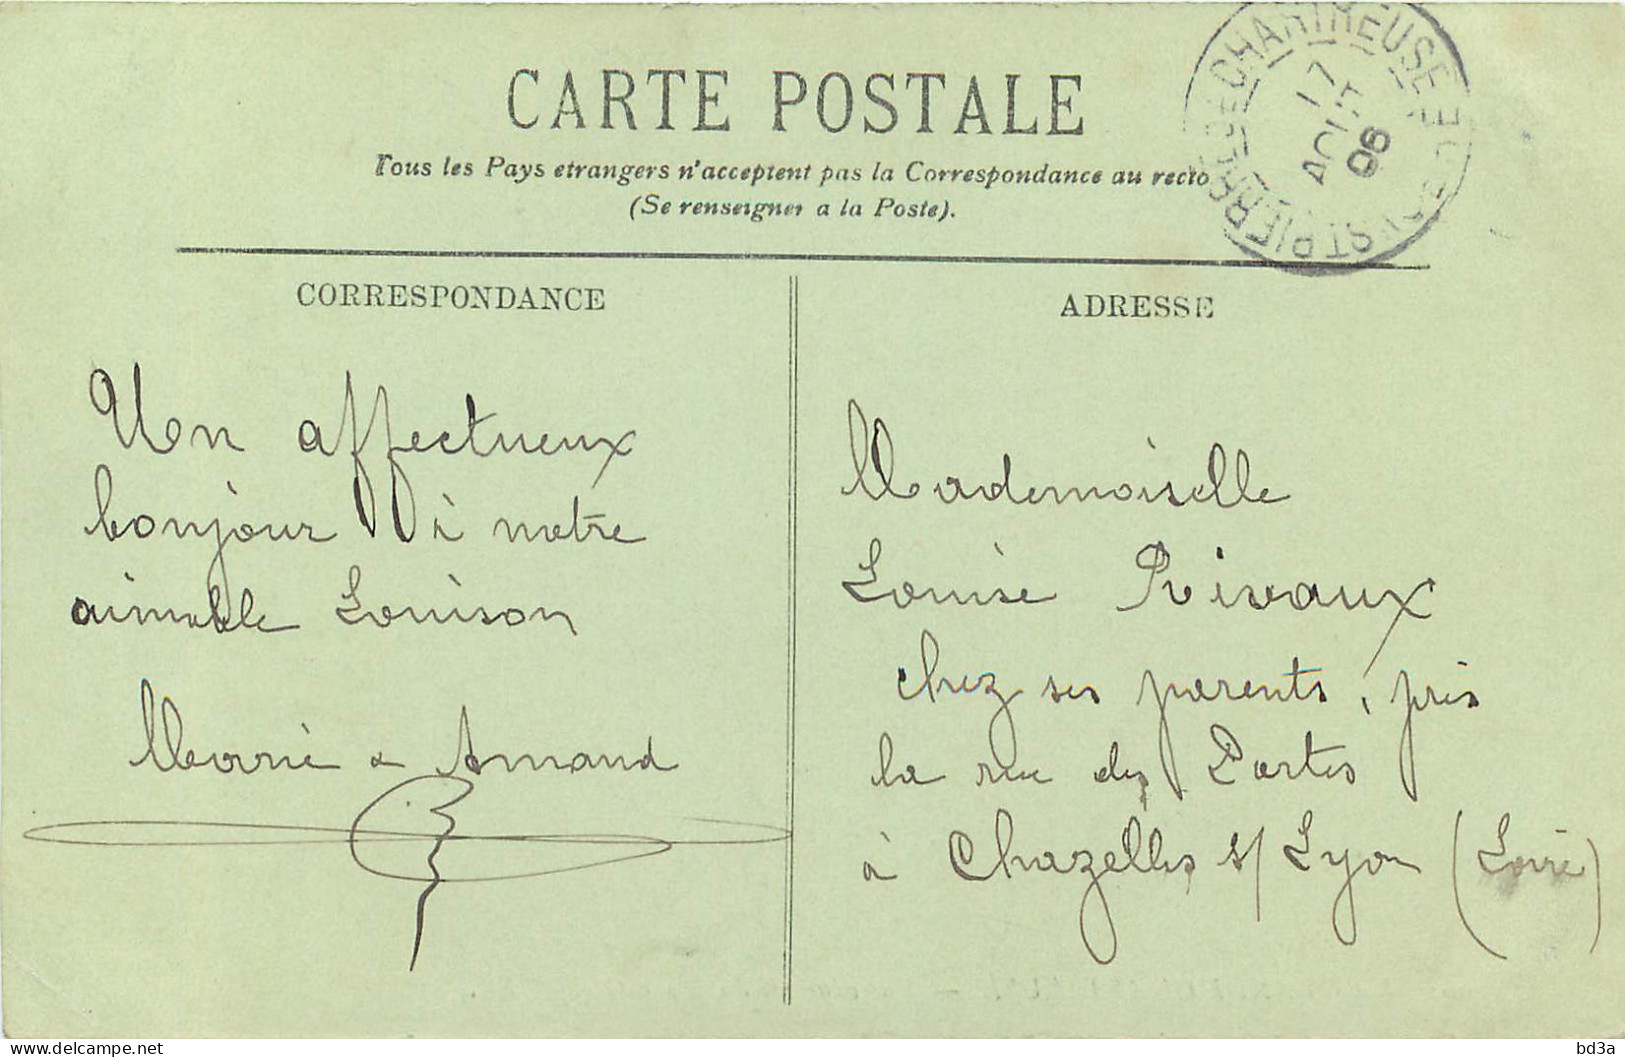 CARTE POSTALE
Tous les Pays etrangers n'acceptent pas la Correspondance au recto
(Se renseigner a la Poste).
ST PIERRE-DE-CHARTREUSE
17
AOUT
06
CORRESPONDANCE
Un affectueux
bonjour à notre
aimable Louison
Marie & Amand
ADRESSE
Mademoiselle
Louise Rivaux
chez ses parents, près
la rue des Portes
à Chazelles s/ Lyon (Loire)
delcampe.net
bd3a